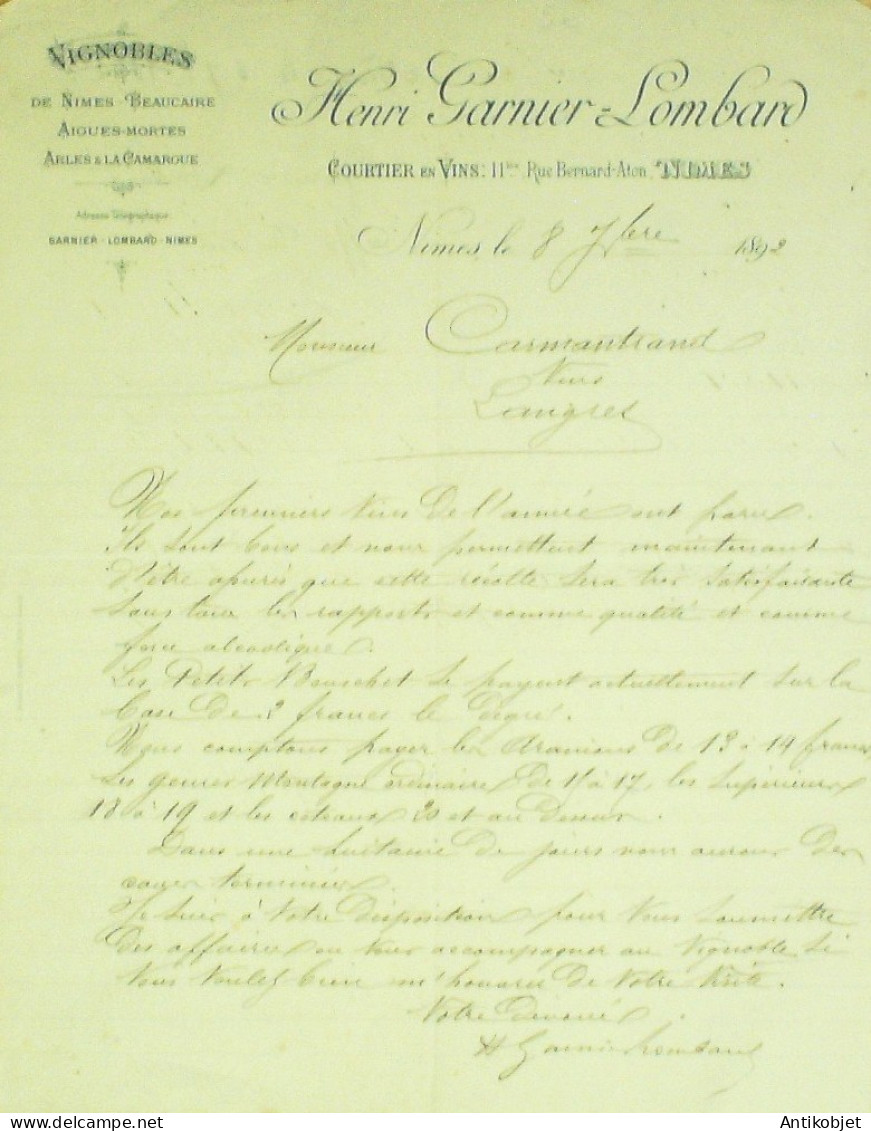 VIGNOBLES
DE NIMES-BEAUCAIRE
AIGUES-MORTES
ARLES & LA CAMARGUE
Adresse Télégraphique
GARNIER-LOMBARD-NIMES
Henri Garnier-Lombard
COURTIER EN VINS: 11bis Rue Bernard-Aton NIMES
Nimes le 8 7bre 1892
Monsieur Carmantrand
Vins
Langres
Nos premiers vins de l'année ont paru.
Ils sont bons et nous permettent maintenant
d'être que cette récolte sera très satisfaisante
sous tous les rapports et comme qualité et comme
force alcoolique.
Les Petits Bouschet se payent actuellement sur la
base de 2 francs le degré.
Nous comptons payer les Aramons de 13 à 14 francs
Les genres Montagne ordinaires de 15 à 17, les supérieurs
18 à 19 et les coteaux 20 et au dessus.
Dans une huitaine de jours nous aurons des
caves terminées.
Je suis à votre disposition pour vous soumettre
des affaires ou vous accompagner au vignoble si
vous voulez bien m'honorer de votre visite.
Votre dévoué
H Garnier Lombard
Antikobjet